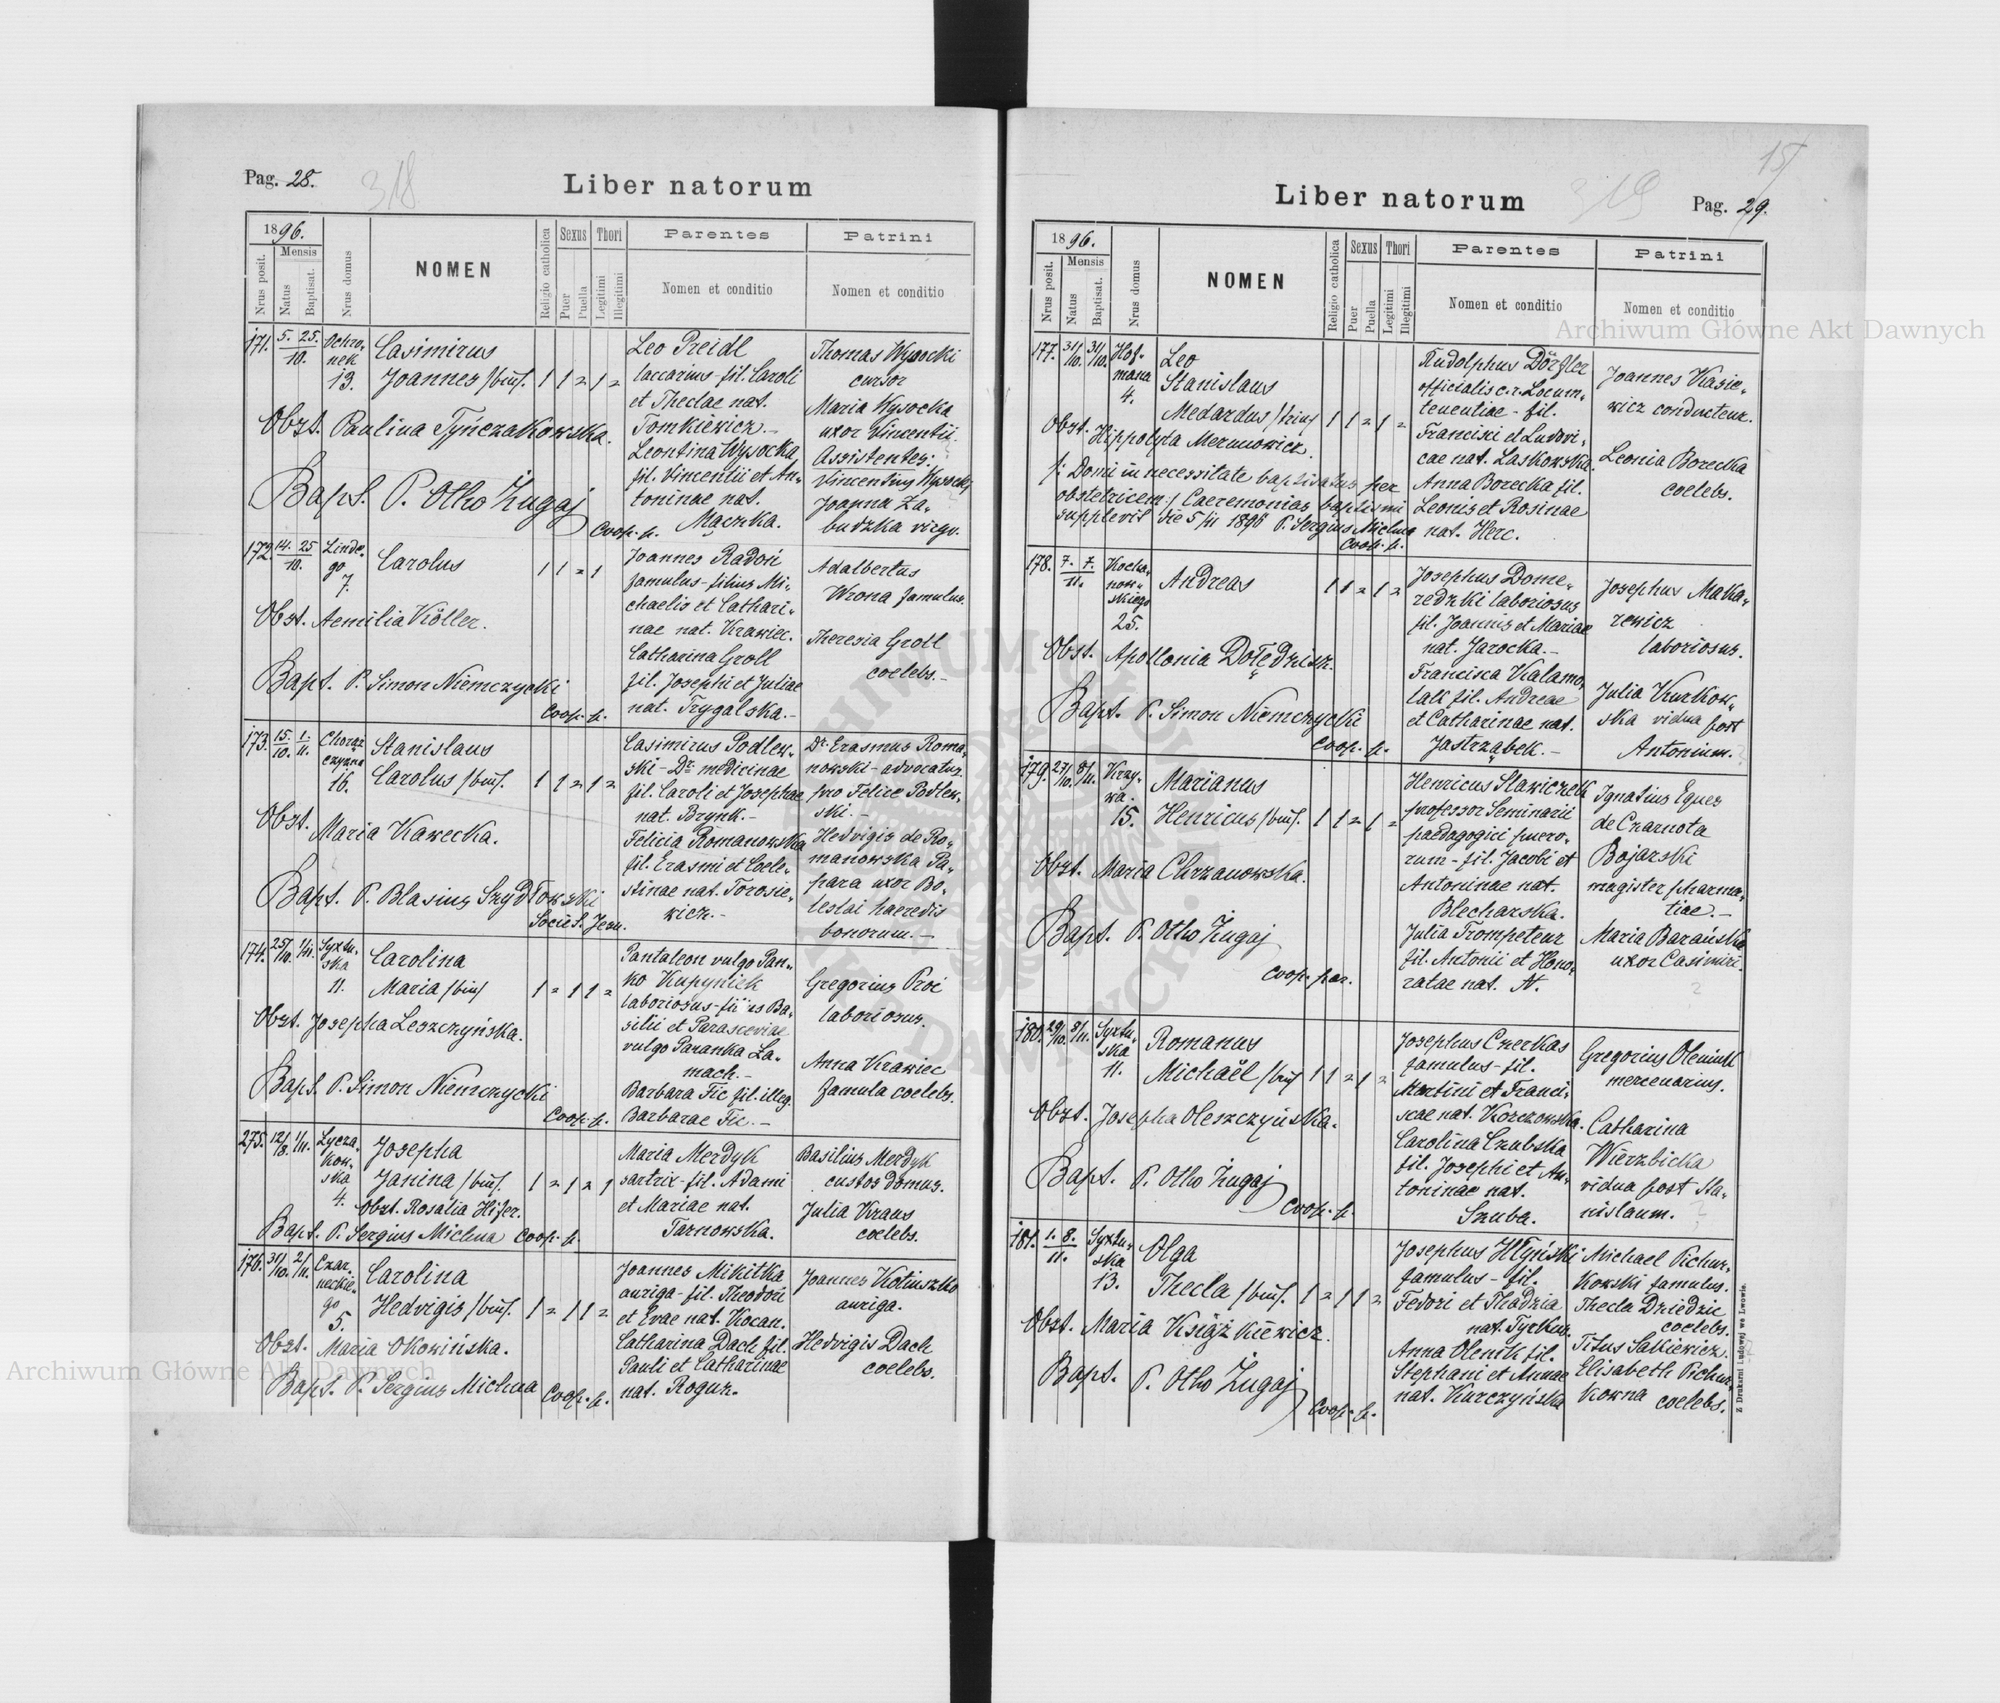 Pag. 28.
318
Liber natorum
1896.
Mensis
Nrus posit.
Natus
Baptisat.
Nrus domus
NOMEN
Religio catholica
Sexus
Puer
Puella
Thori
Legitimi
Illegitimi
Parentes
Nomen et conditio
Patrini
Nomen et conditio
171. 5. 25. 10. Ochronek 13.
Casimirus
Joannes /bin/. 1 1 = 1 =
Obst. Paulina Tyńczakowska.
Bapt. P. Otho Żugaj
Coop. p.
Leo Preidl
laccarius - fil. Caroli
et Theclae nat.
Tomkiewicz. -
Leontina Wysocka
fil. Vincentii et An-
toninae nat.
Mączka.
Thomas Wysocki
cursor
Maria Wysocka
uxor Vincentii.
Assistentes:
Vincentius Wysocki
Joanna Za-
budzka virgo.
172. 14. 25 10. Lindego 7.
Carolus 1 1 = 1
Obst. Aemilia Köller.
Bapt. P. Simon Niemczycki
Coop. p.
Joannes Radoń
famulus - filius Mi-
chaelis et Cathari-
nae nat. Krawiec.
Catharina Groll
fil. Josephi et Juliae
nat. Trygalska. -
Adalbertus
Wrona famulus.
Theresia Groll
coelebs. -
173. 15. 10. 1. 11. Chorążczyzna 16.
Stanislaus
Carolus /bin/. 1 1 = 1 =
Obst. Maria Kawecka.
Bapt. P. Blasius Szydłowski
Societ. Jesu.
Casimirus Podlew-
ski - Dr. medicinae
fil. Caroli et Josephae
nat. Brynk. -
Felicia Romanowska
fil. Erasmi et Coele-
stinae nat. Torosie-
wicz. -
Dr. Erasmus Roma-
nowski - advocatus
pro Felice Podlew-
ski. -
Hedvigis de Ro-
manowska Pa-
para uxor Bo-
leslai haeredis
bonorum. -
174. 25/10. 1/11. Sykstuska 11.
Carolina
Maria /bin/ 1 = 1 1 =
Obst. Josepha Leszczyńska.
Bapt. P. Simon Niemczycki
Coop. p.
Pantaleon vulgo Pan-
ko Kupyniek
laboriosus - filius Ba-
silii et Parasceviae
vulgo Paranka Ła-
mach. -
Barbara Fic fil. illeg.
Barbarae Fic. -
Gregorius Proi
laboriosus.
Anna Krawiec
famula coelebs.
275. 12/8. 1/11. Łyczakowska 4.
Josepha
Janina /bin/. 1 = 1 = 1
Obst. Rosalia Hifer.
Bapt. P. Sergius Michna Coop. p.
Maria Merdyk
sartrix - fil. Adami
et Mariae nat.
Tarnowska.
Basilius Merdyk
custos domus.
Julia Kraus
coelebs.
176. 31/10. 2/11. Czarneckiego 5.
Carolina
Hedvigis /bin/. 1 = 1 1 =
Obst. Maria Okowińska.
Bapt. P. Sergius Michna Coop. p.
Joannes Mikitka
auriga - fil. Theodori
et Evae nat. Kocan.
Catharina Dach fil.
Pauli et Catharinae
nat. Roguz.
Joannes Kotiuszko
auriga.
Hedvigis Dach
coelebs.
Liber natorum
319
15
Pag. 29.
1896.
Mensis
Nrus posit.
Natus
Baptisat.
Nrus domus
NOMEN
Religio catholica
Sexus
Puer
Puella
Thori
Legitimi
Illegitimi
Parentes
Nomen et conditio
Patrini
Nomen et conditio
177. 31/10. 31/10. Hofmana 4.
Leo
Stanislaus
Medardus /trin/ 1 1 = 1 =
Obst. Hippolyta Merunowicz.
/: Domi in necessitate baptisatus per
obstetricem :/ Caeremonias baptismi
supplevit die 5/11 1896 P. Sergius Michna
Coop. p.
Rudolphus Dörfler
officialis c. r. Locum-
tenentiae - fil.
Francisci et Ludovi-
cae nat. Laskowska.
Anna Borecka fil.
Leonis et Rosinae
nat. Herc.
Joannes Kasie-
wicz conducteur.
Leonia Borecka
coelebs.
178. 7. 7. 11. Kochanowskiego 25.
Andreas 1 1 = 1 =
Obst. Apollonia Dołędzisz.
Bapt. P. Simon Niemczycki
Coop. p.
Josephus Dome-
redzki laboriosus
fil. Joannis et Mariae
nat. Jarocka. -
Francisca Kalamo-
lak fil. Andreae
et Catharinae nat.
Jastrząbek. -
Josephus Maka-
rewicz
laboriosus.
Julia Kurkow-
ska vidua post
Antonium.
179. 27/10. 8/11. Krzywa. 15.
Marianus
Henricus /bin/. 1 1 = 1 =
Obst. Maria Chrzanowska.
Bapt. P. Otho Żugaj
Coop. par.
Henricus Sławiczek
professor Seminarii
paedagogici puero-
rum - fil. Jacobi et
Antoninae nat.
Blecharska.
Julia Trompeteur
fil. Antonii et Hono-
ratae nat. N.
Ignatius Eques
de Czarnota
Bojarski
magister pharma-
tiae. -
Maria Barańska
uxor Casimiri.
180. 29/10. 8/11. Syxtuska 11.
Romanus
Michaël /bin/ 1 1 = 1 =
Obst. Josepha Oleszczyńska.
Bapt. P. Otho Żugaj
Coop. p.
Josephus Czerkas
famulus - fil.
Martini et Franci-
scae nat. Korczowska.
Carolina Czubska
fil. Josephi et An-
toninae nat.
Szuba.
Gregorius Oleniuk
mercenarius.
Catharina
Wierzbicka
vidua post Sta-
nislaum.
181. 1. 8. 11. Syxtuska 13.
Olga
Thecla /bin/. 1 = 1 1 =
Obst. Maria Książkiewicz.
Bapt. P. Otho Żugaj
Coop. p.
Josephus Hłyński
famulus - fil.
Fedori et Thadzia
nat. Tyrkus.
Anna Olenik fil.
Stephani et Annae
nat. Kurczyńska
Michael Pichur-
kowski famulus.
Thecla Dziedzic
coelebs.
Titus Salkiewicz.
Elisabeth Pichur-
kowna coelebs.
Z Drukarni Ludowej we Lwowie.
Archiwum Główne Akt Dawnych
Archiwum Główne Akt Dawnych